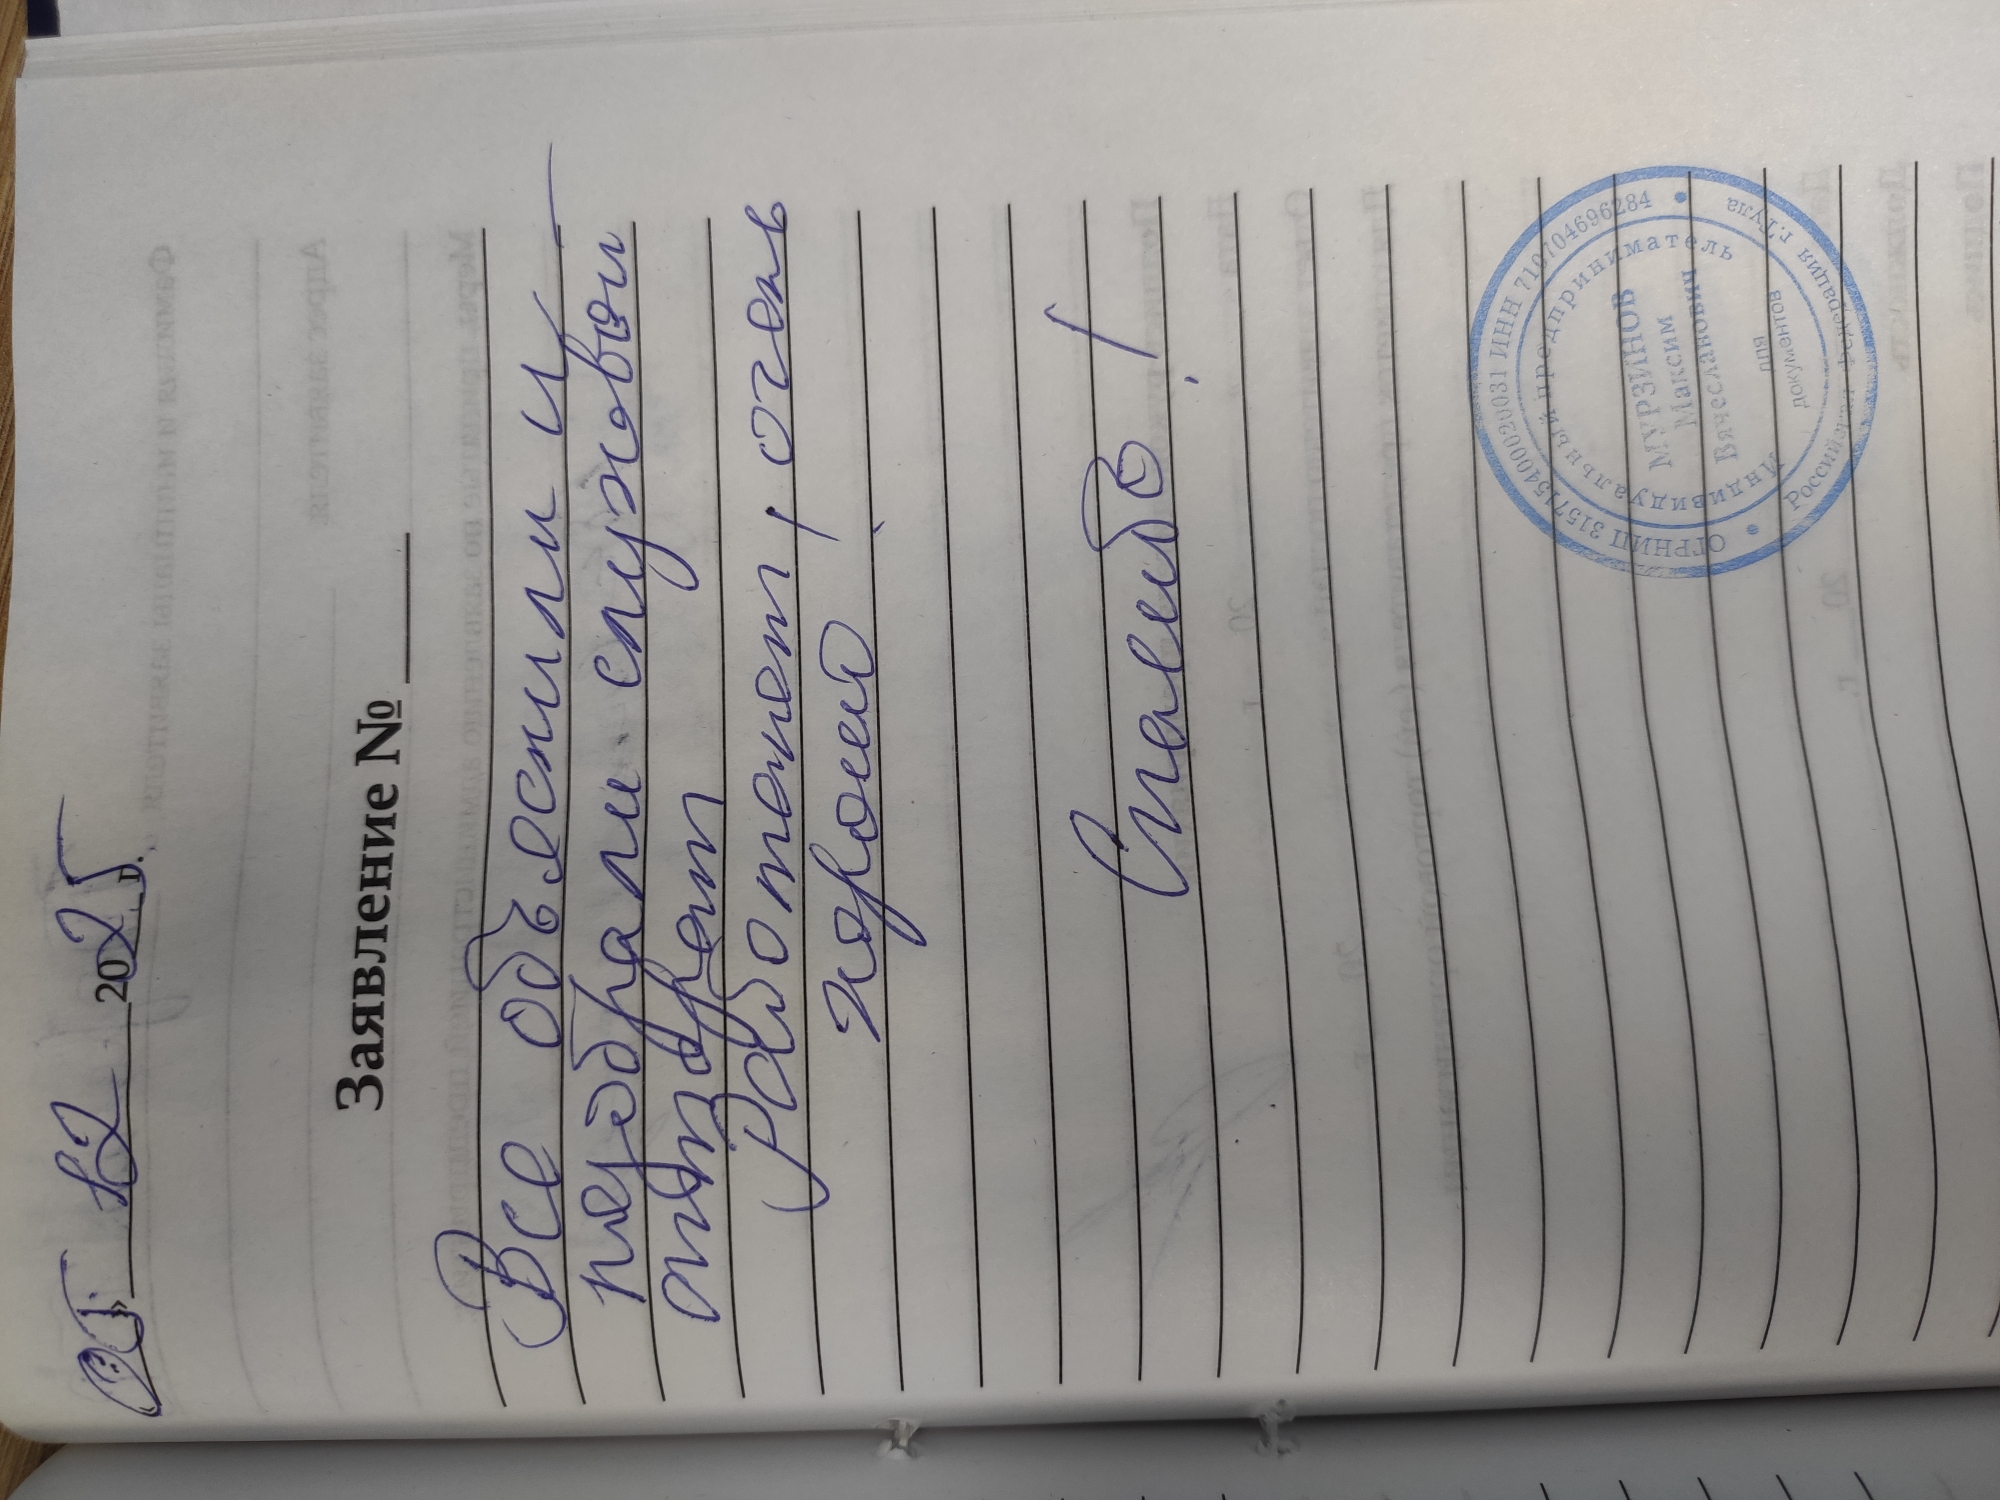 05. 12 2025 г.
Заявление № ____
Все объяснили и
подобрали слуховой
аппарат
Работает, очень
хорошо.
Спасибо!
ОГРНИП 315715400020031 ИНН 710704696284
Индивидуальный предприниматель
МУРЗИНОВ
Максим
Вячеславович
для
документов
Российская Федерация г.Тула